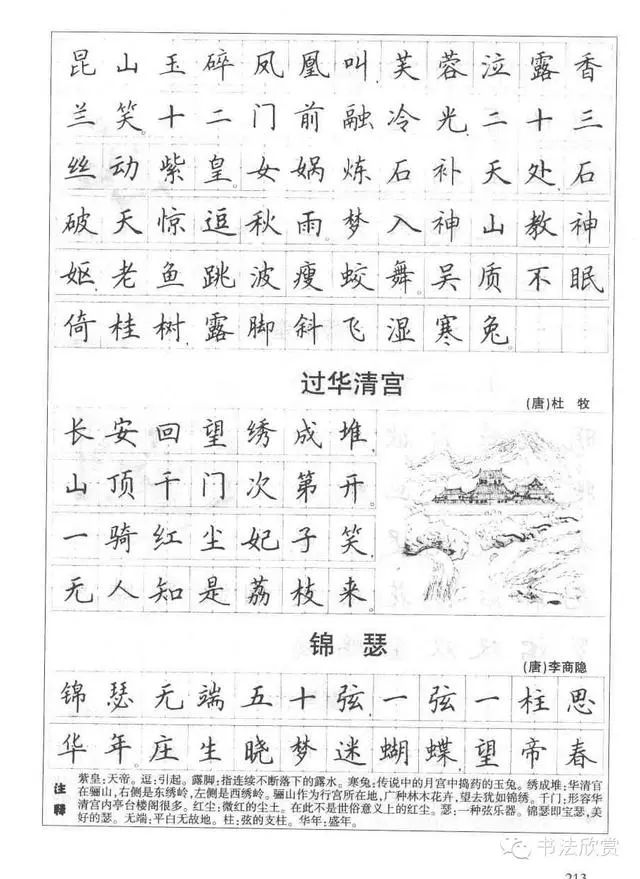 昆山玉碎凤凰叫,芙蓉泣露香
兰笑。十二门前融冷光,二十三
丝动紫皇。女娲炼石补天处,石
破天惊逗秋雨。梦入神山教神
妪,老鱼跳波瘦蛟舞。吴质不眠
倚桂树,露脚斜飞湿寒兔。
过华清宫
(唐)杜 牧
长安回望绣成堆,
山顶千门次第开。
一骑红尘妃子笑,
无人知是荔枝来。
锦 瑟
(唐)李商隐
锦瑟无端五十弦,一弦一柱思
华年。庄生晓梦迷蝴蝶,望帝春
注释
紫皇:天帝。逗:引起。露脚:指连续不断落下的露水。寒兔:传说中的月宫中捣药的玉兔。绣成堆:华清宫
在骊山,右侧是东绣岭,左侧是西绣岭。骊山作为行宫所在地,广种林木花卉,望去犹如锦绣。千门:形容华
清宫内亭台楼阁很多。红尘:微红的尘土。在此不是世俗意义上的红尘。瑟:一种弦乐器。锦瑟即宝瑟,美
好的瑟。无端:平白无故地。柱:弦的支柱。华年:盛年。
书法欣赏
213